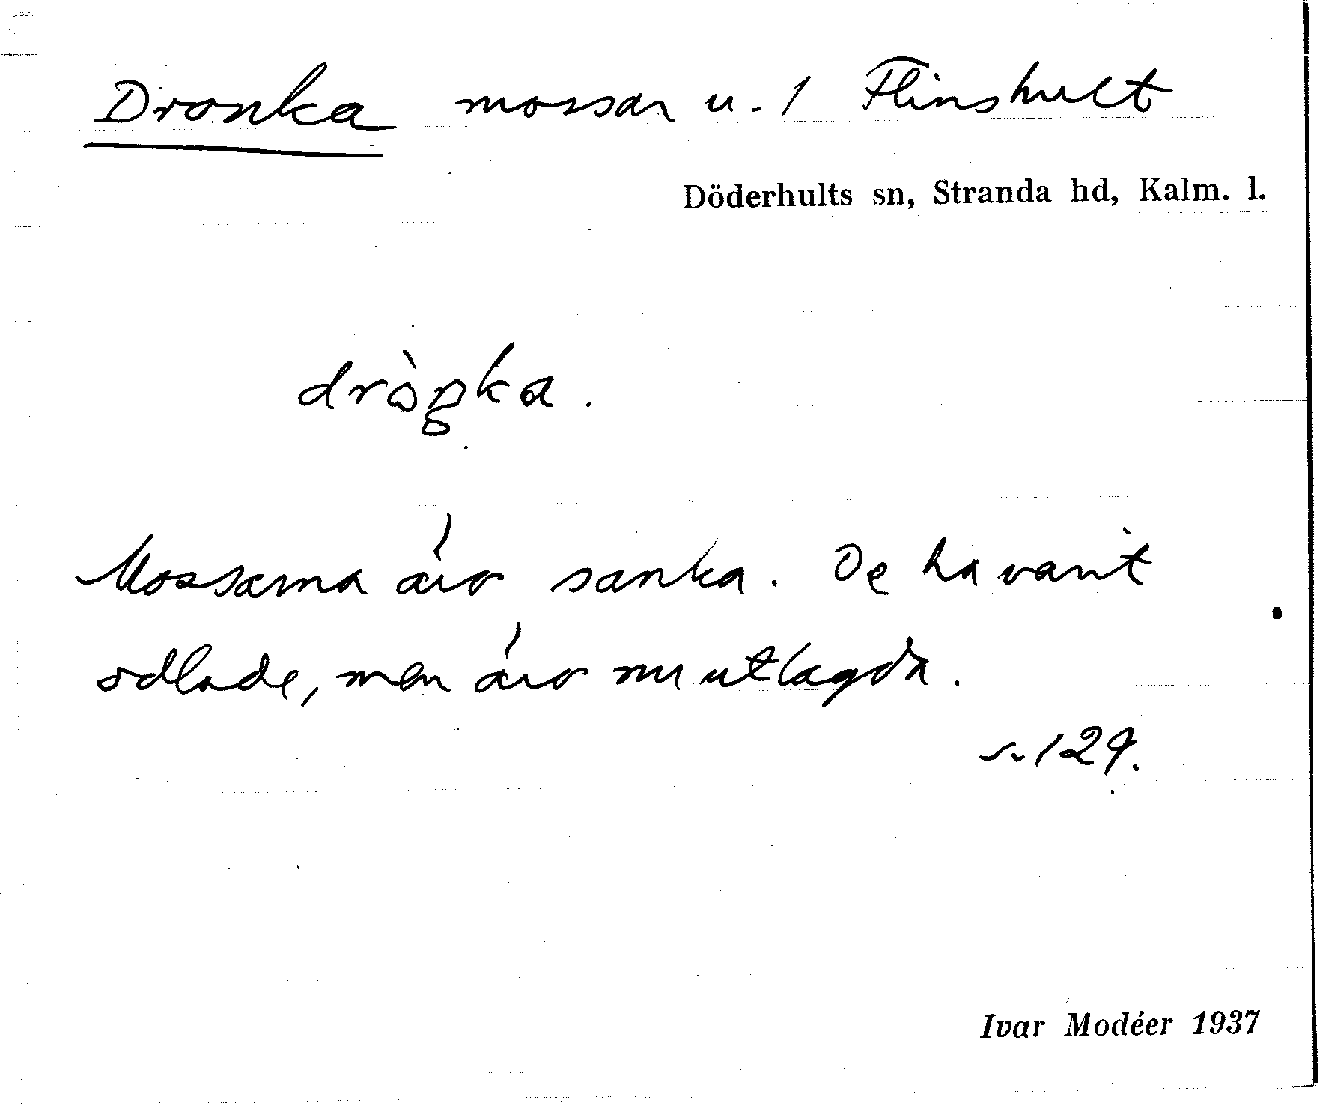 Dronka mossar u. 1 Flinshult
Döderhults sn, Stranda hd, Kalm. l.
dròŋka.
Mossarna äro sanka. De ha varit
odlade, men äro nu utlagda.
s. 129.
Ivar Modéer 1937